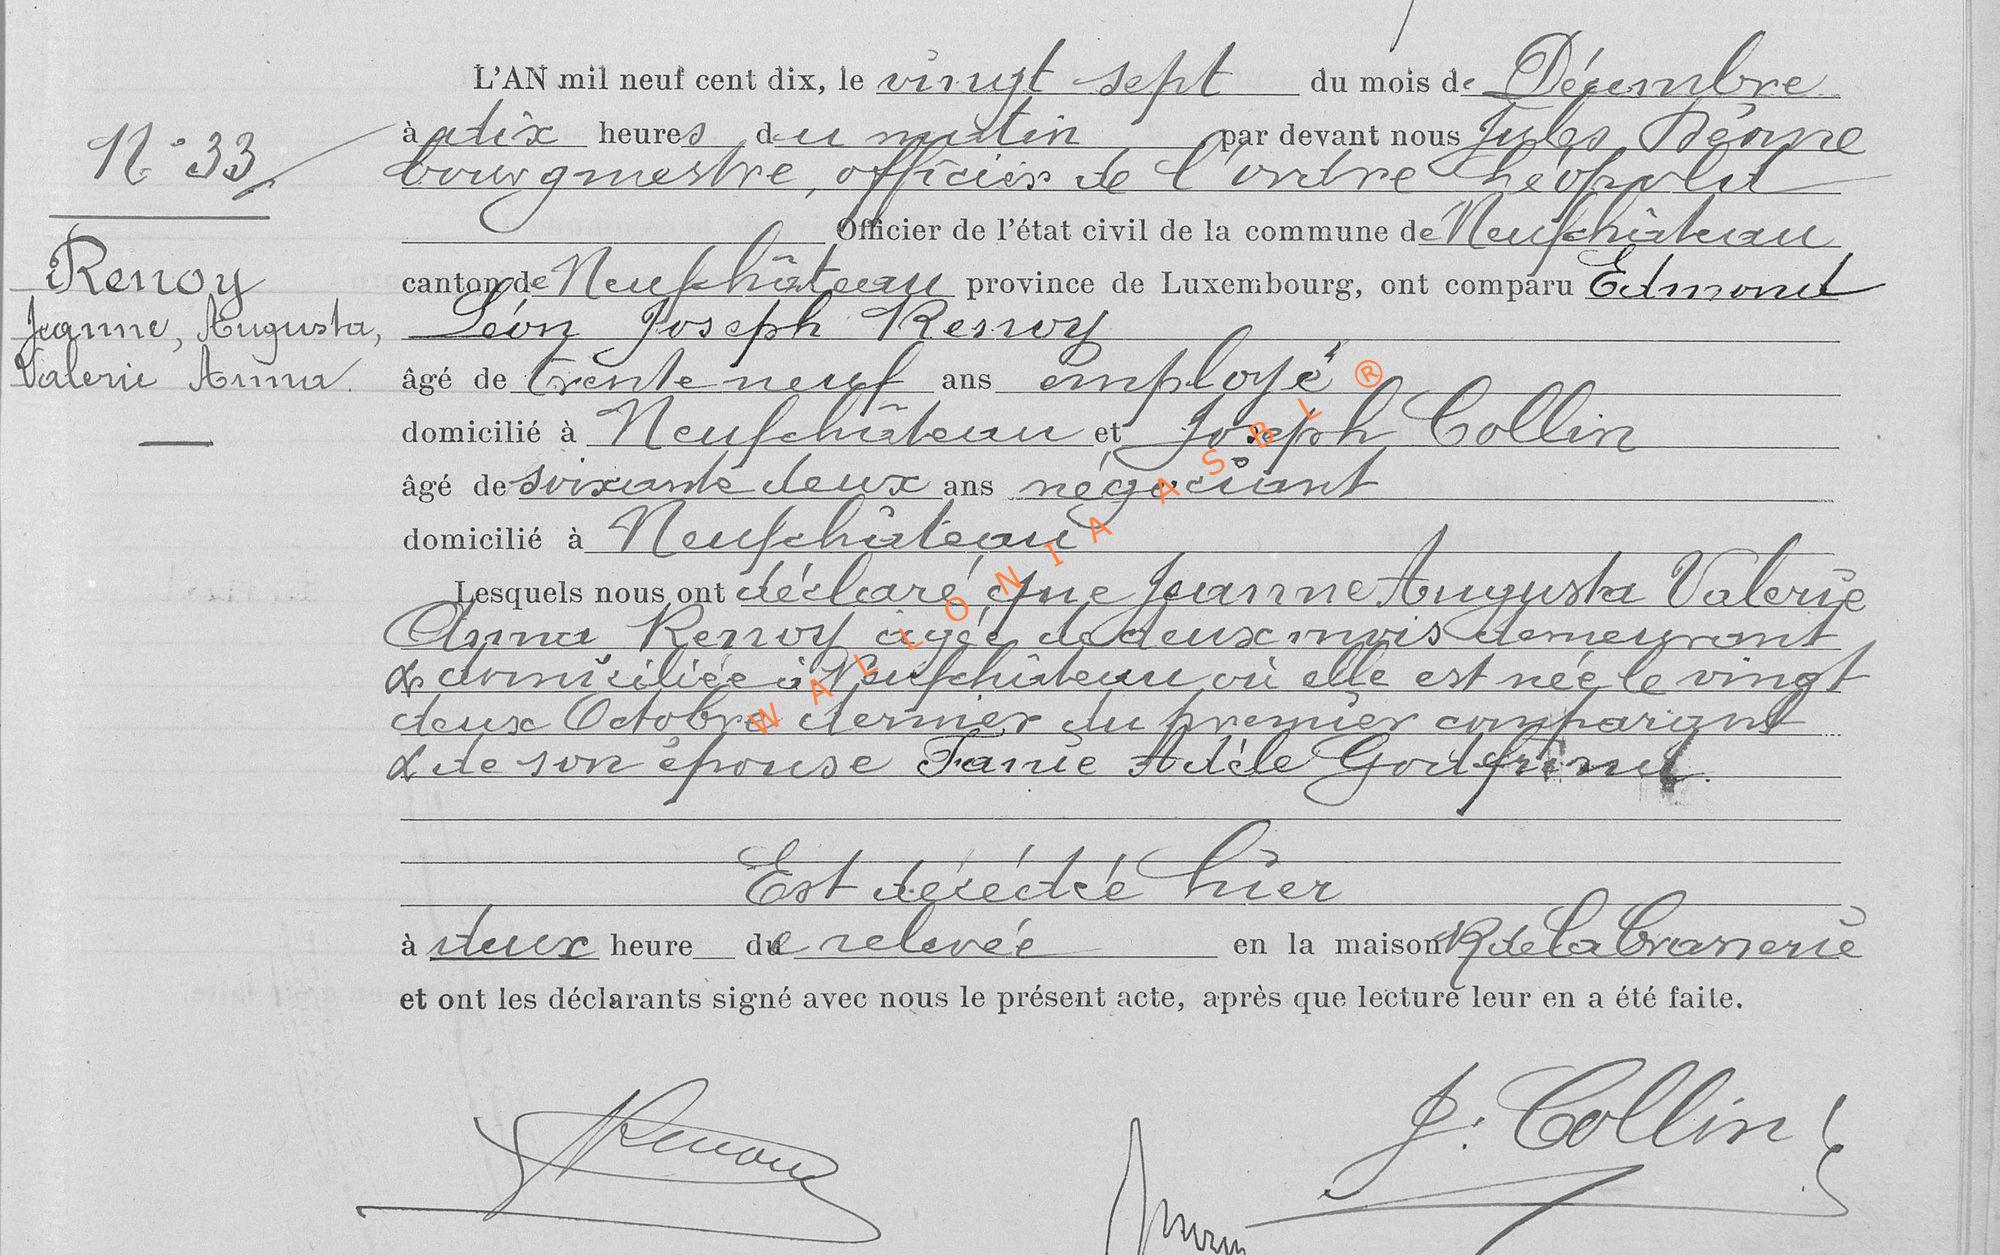 L'AN mil neuf cent dix, le vingt sept du mois de Décembre
N° 33
à dix heures du matin par devant nous Jules
bourgmestre, officier de l'ordre Léopold
Officier de l'état civil de la commune de Neufchâteau
Renoy
canton de Neufchâteau province de Luxembourg, ont comparu Edmond
Jeanne, Augusta,
Léon Joseph Renoy
Valerie Anna.
âgé de trente neuf ans employé
domicilié à Neufchâteau et Joseph Collin
âgé de soixante deux ans négociant
domicilié à Neufchâteau
Lesquels nous ont déclaré que Jeanne Augusta Valerie
Anna Renoy agée de deux mois demeurant
& domiciliée à Neufchâteau où elle est née le vingt
deux Octobre dernier du premier comparant
& de son épouse Fanie Adèle Godfrind.
Est décédée hier
à deux heure de relevée en la maison R de la brasserie
et ont les déclarants signé avec nous le présent acte, après que lecture leur en a été faite.
Renoy
J. Collin
WALLONIA ASBL ®